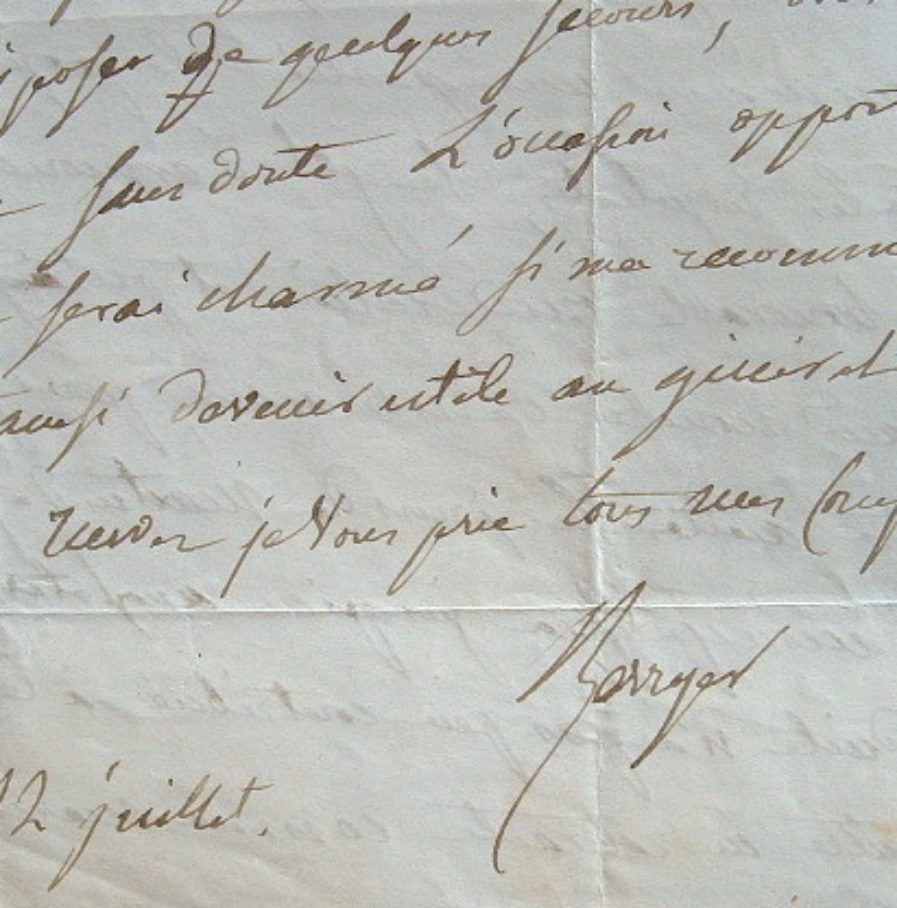 poser de quelques secours,
sans doute L'occasion opport
serai charmé si ma recomm
aussi devenir utile au général
recevez je Vous prie tous mes Comp
Berryer
12 juillet.